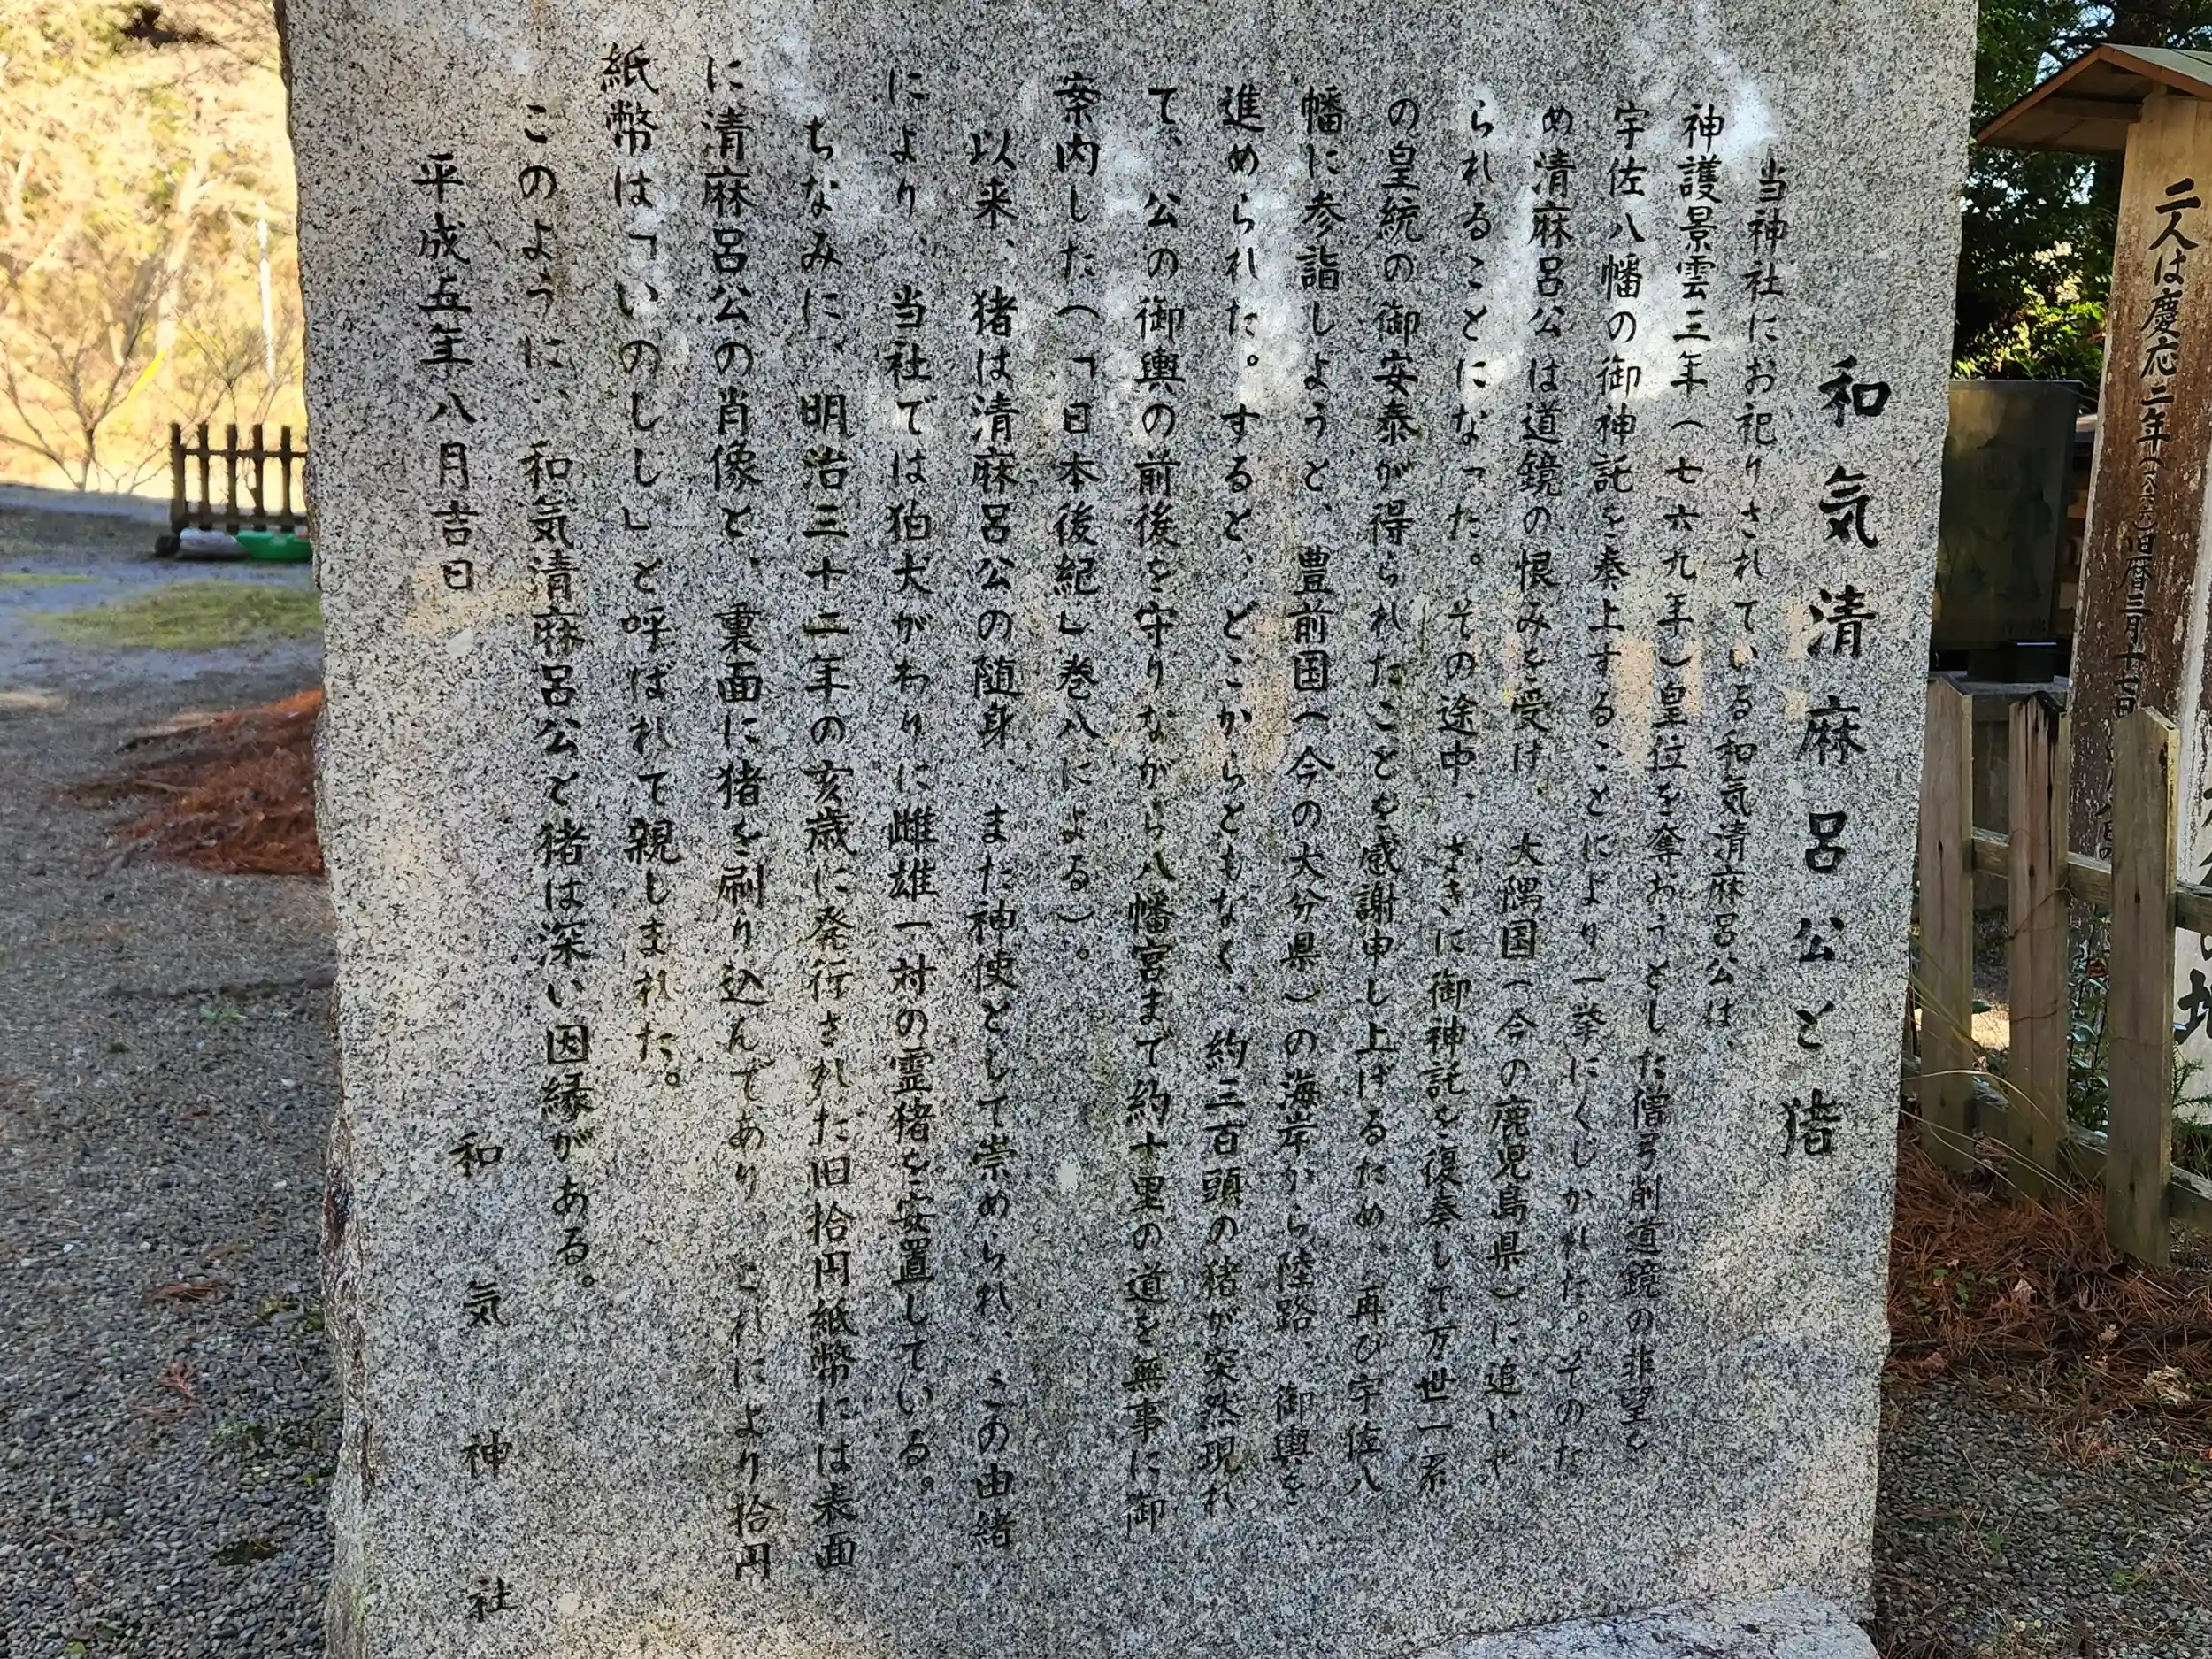 和気清麻呂公と猪
当神社にお祀りされている和気清麻呂公は、
神護景雲三年（七六九年）皇位を奪おうとした僧弓削道鏡の非望を
宇佐八幡の御神託を奏上することにより一挙にくじかれた。そのた
め清麻呂公は道鏡の恨みを受け、大隅国（今の鹿児島県）に追いや
られることになった。その途中、さきに御神託を復奏して万世一系
の皇統の御安泰が得られたことを感謝申し上げるため、再び宇佐八
幡に参詣しようと、豊前国（今の大分県）の海岸から陸路、御輿を
進められた。すると、どこからともなく、約三百頭の猪が突然現れ
て、公の御輿の前後を守りながら八幡宮まで約十里の道を無事に御
案内した（「日本後紀」巻八による）。
以来、猪は清麻呂公の随身、また神使として崇められ、この由緒
により、当社では狛犬がわりに雌雄一対の霊猪を安置している。
ちなみに、明治三十二年の亥歳に発行された旧拾円紙幣には表面
に清麻呂公の肖像と、裏面に猪を刷り込んであり、これにより拾円
紙幣は「いのしし」と呼ばれて親しまれた。
このように、和気清麻呂公と猪は深い因縁がある。
平成五年八月吉日
和気神社
二人は慶応二年(一八六六)旧暦三月十七日